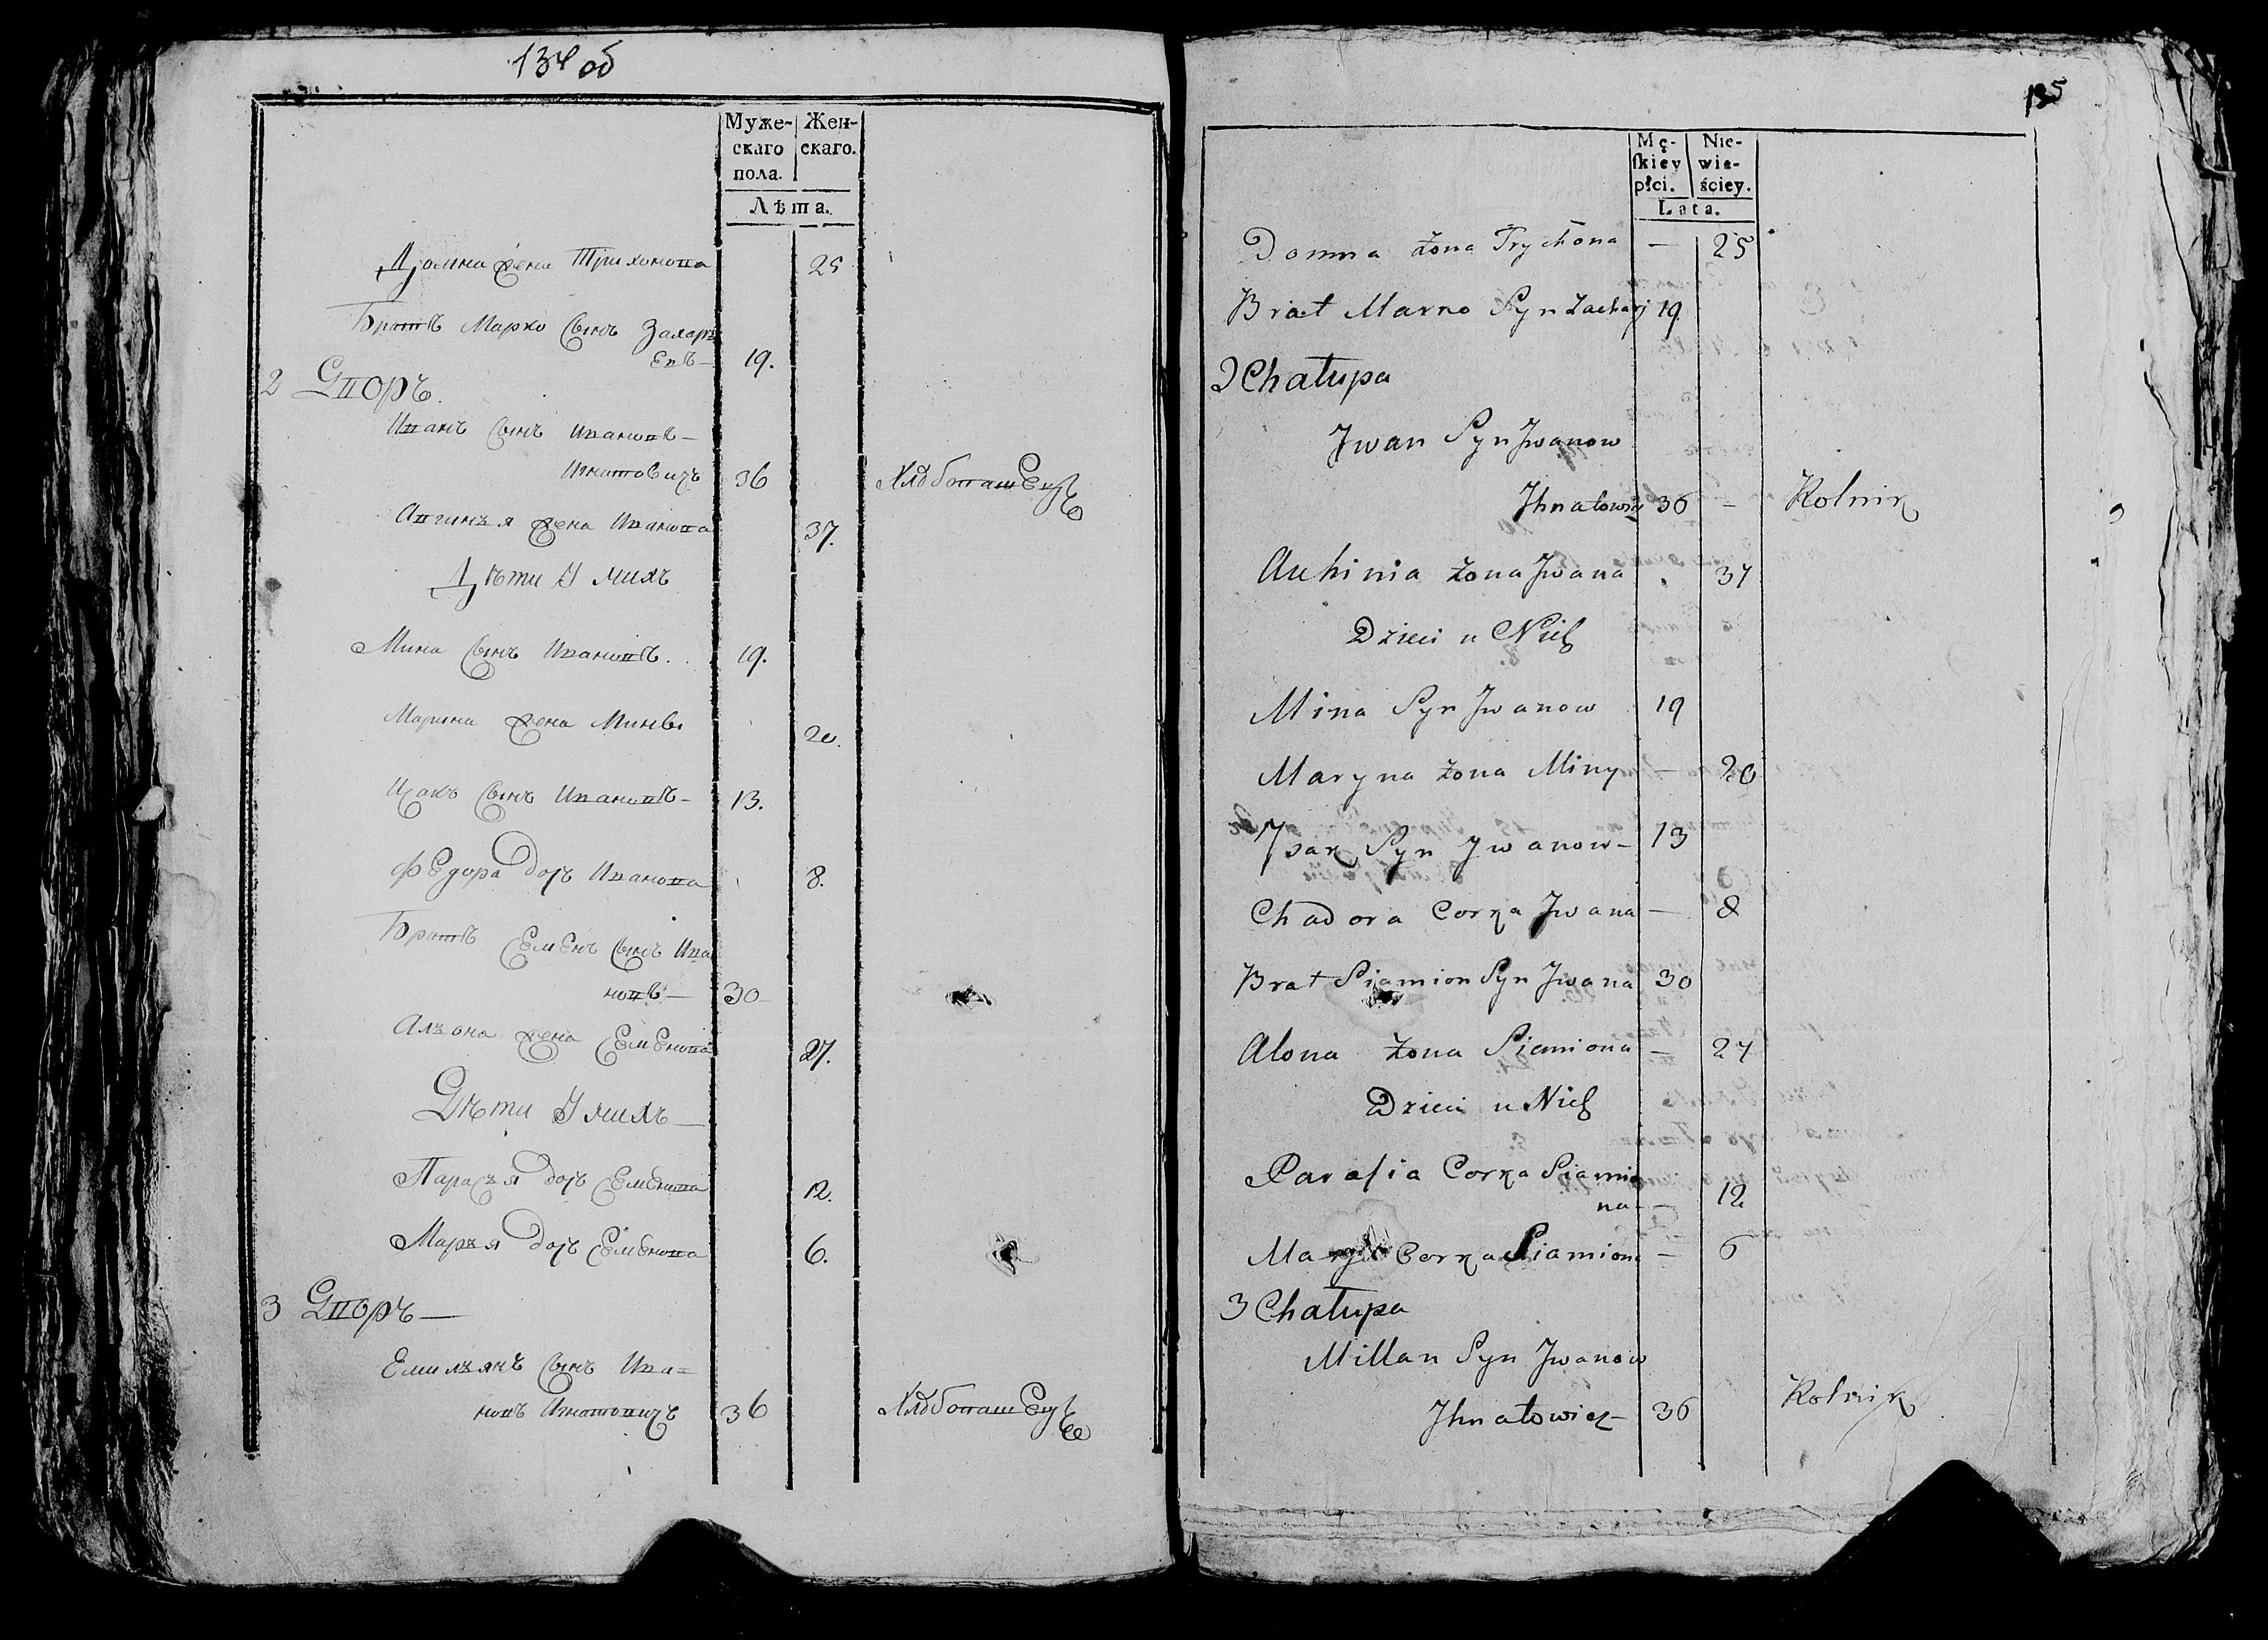 134 об
Муже-
скаго
пола.
Жен-
скаго.
Лѣта.
Домна жена Трихонова 25
Братъ Марко сынъ Захарь
евъ — 19.
2 Дворъ.
Иванъ сынъ Ивановъ —
Игнатовичъ 36 Хлѣбопашецъ
Авгинья жена Иванова 37.
Дѣти У нихъ
Мина сынъ Ивановъ. 19.
Марина жена Мины 20.
Исакъ сынъ Ивановъ — 13.
Федора дочъ Иванова 8.
Братъ Семенъ сынъ Ива
новъ — 30
Альона жена Семенова 27.
Дѣти У нихъ —
Парасья дочъ Семенова 12.
Марья дочъ Семенова 6.
3 Дворъ —
Емильянъ сынъ Ива=
новъ Игнатовичъ 36 Хлѣбопашецъ
135
Mę-
ſkiey
płci.
Nie-
wie-
ściey.
Lata.
Domna żona Trychona — 25
Brat Marko Syn Zacharj 19
2 Chałupa
Jwan Syn Jwanow
Jhnatowicz 36 — Rolnik
Auhinia żona Jwana 37
Dzieci u Nich
Mina Syn Jwanow 19
Maryna żona Miny — 20
Jsak Syn Jwanow — 13
Chadora Corka Jwana — 8
Brat Siamion Syn Jwana 30
Alona żona Siamiona — 27
Dzieci u Nich
Parasia Corka Siamio
na — 12
Marya Corka Siamiona — 6
3 Chałupa
Millan Syn Jwanow
Jhnatowicz — 36 Rolnik